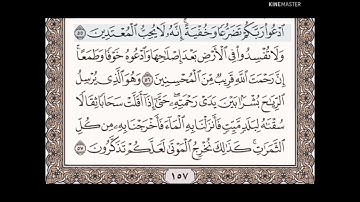 KINEMASTER
ٱدۡعُواْ رَبَّكُمۡ تَضَرُّعٗا وَخُفۡيَةًۚ إِنَّهُۥ لَا يُحِبُّ ٱلۡمُعۡتَدِينَ ٥٥
وَلَا تُفۡسِدُواْ فِي ٱلۡأَرۡضِ بَعۡدَ إِصۡلَٰحِهَا وَٱدۡعُوهُ خَوۡفٗا وَطَمَعًاۚ
إِنَّ رَحۡمَتَ ٱللَّهِ قَرِيبٞ مِّنَ ٱلۡمُحۡسِنِينَ ٥٦ وَهُوَ ٱلَّذِي يُرۡسِلُ
ٱلرِّيَٰحَ بُشۡرَۢا بَيۡنَ يَدَيۡ رَحۡمَتِهِۦۖ حَتَّىٰٓ إِذَآ أَقَلَّتۡ سَحَابٗا ثِقَالٗا
سُقۡنَٰهُ لِبَلَدٖ مَّيِّتٖ فَأَنزَلۡنَا بِهِ ٱلۡمَآءَ فَأَخۡرَجۡنَا بِهِۦ مِن كُلِّ
ٱلثَّمَرَٰتِۚ كَذَٰلِكَ نُخۡرِجُ ٱلۡمَوۡتَىٰ لَعَلَّكُمۡ تَذَكَّرُونَ ٥٧
١٥٧